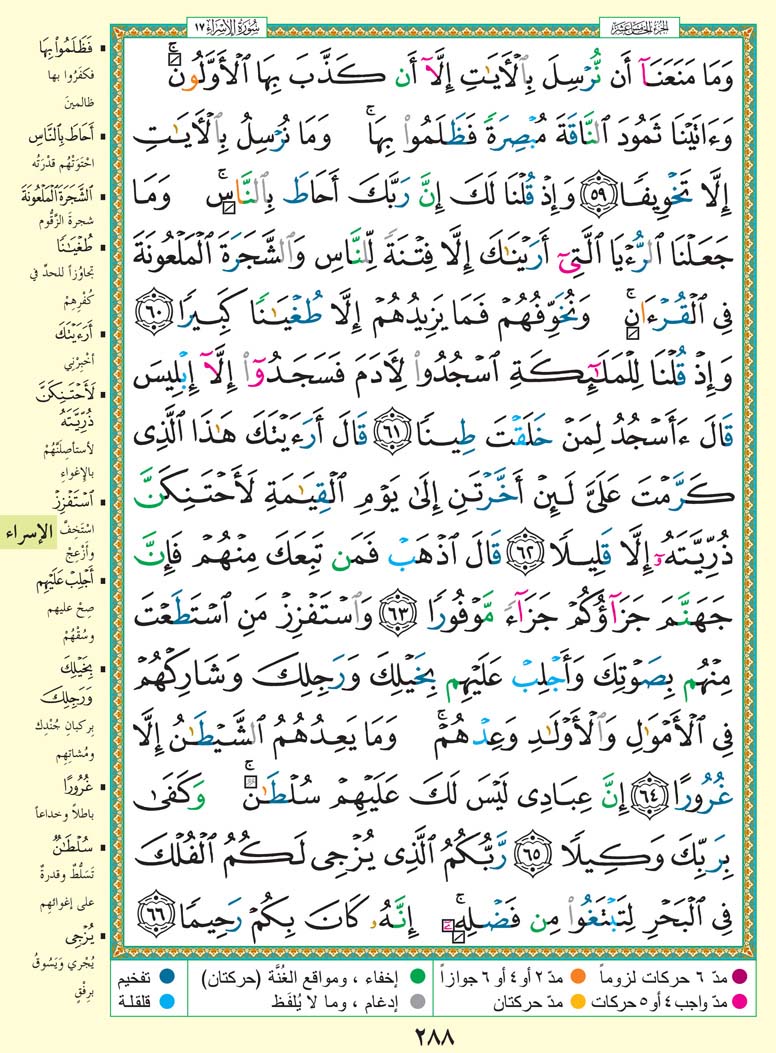 الجزء الخامس عشر
سورة الإسراء ١٧
وَمَا مَنَعَنَآ أَن نُّرۡسِلَ بِٱلۡأٓيَٰتِ إِلَّآ أَن كَذَّبَ بِهَا ٱلۡأَوَّلُونَۚ
وَءَاتَيۡنَا ثَمُودَ ٱلنَّاقَةَ مُبۡصِرَةٗ فَظَلَمُواْ بِهَاۚ وَمَا نُرۡسِلُ بِٱلۡأٓيَٰتِ
إِلَّا تَخۡوِيفٗا ٥٩ وَإِذۡ قُلۡنَا لَكَ إِنَّ رَبَّكَ أَحَاطَ بِٱلنَّاسِۚ وَمَا
جَعَلۡنَا ٱلرُّءۡيَا ٱلَّتِيٓ أَرَيۡنَٰكَ إِلَّا فِتۡنَةٗ لِّلنَّاسِ وَٱلشَّجَرَةَ ٱلۡمَلۡعُونَةَ
فِي ٱلۡقُرۡءَانِۚ وَنُخَوِّفُهُمۡ فَمَا يَزِيدُهُمۡ إِلَّا طُغۡيَٰنٗا كَبِيرٗا ٦٠
وَإِذۡ قُلۡنَا لِلۡمَلَٰٓئِكَةِ ٱسۡجُدُواْ لِأٓدَمَ فَسَجَدُوٓاْ إِلَّآ إِبۡلِيسَ
قَالَ ءَأَسۡجُدُ لِمَنۡ خَلَقۡتَ طِينٗا ٦١ قَالَ أَرَءَيۡتَكَ هَٰذَا ٱلَّذِي
كَرَّمۡتَ عَلَيَّ لَئِنۡ أَخَّرۡتَنِ إِلَىٰ يَوۡمِ ٱلۡقِيَٰمَةِ لَأَحۡتَنِكَنَّ
ذُرِّيَّتَهُۥٓ إِلَّا قَلِيلٗا ٦٢ قَالَ ٱذۡهَبۡ فَمَن تَبِعَكَ مِنۡهُمۡ فَإِنَّ
جَهَنَّمَ جَزَآؤُكُمۡ جَزَآءٗ مَّوۡفُورٗا ٦٣ وَٱسۡتَفۡزِزۡ مَنِ ٱسۡتَطَعۡتَ
مِنۡهُم بِصَوۡتِكَ وَأَجۡلِبۡ عَلَيۡهِم بِخَيۡلِكَ وَرَجِلِكَ وَشَارِكۡهُمۡ
فِي ٱلۡأَمۡوَٰلِ وَٱلۡأَوۡلَٰدِ وَعِدۡهُمۡۚ وَمَا يَعِدُهُمُ ٱلشَّيۡطَٰنُ إِلَّا
غُرُورًا ٦٤ إِنَّ عِبَادِي لَيۡسَ لَكَ عَلَيۡهِمۡ سُلۡطَٰنٞۚ وَكَفَىٰ
بِرَبِّكَ وَكِيلٗا ٦٥ رَّبُّكُمُ ٱلَّذِي يُزۡجِي لَكُمُ ٱلۡفُلۡكَ
فِي ٱلۡبَحۡرِ لِتَبۡتَغُواْ مِن فَضۡلِهِۦٓۚ إِنَّهُۥ كَانَ بِكُمۡ رَحِيمٗا ٦٦
فَظَلَمُوا بِهَا
فكفَرُوا بها
ظالمين
أَحَاطَ بِالنَّاسِ
احْتَوَتْهُم قُدرَتُه
الشَّجَرَةَ الْمَلْعُونَةَ
شجرةَ الزَّقُّوم
طُغْيَٰنًا
تجاوُزاً للحدِّ في
كُفْرِهِمْ
أَرَءَيْتَكَ
أخْبِرْني
لَأَحْتَنِكَنَّ
ذُرِّيَّتَهُ
لأستأصِلَنَّهُمْ
بالإغواءِ
اسْتَفْزِزْ
اسْتَخِفَّ
وأَزْعِجْ
أَجْلِبْ عَلَيْهِم
صِحْ عليهم
وسُقْهُمْ
بِخَيْلِكَ
وَرَجِلِكَ
بِرُكبانِ جُنْدِك
ومُشاتِهم
غُرُورًا
باطلاً وخداعاً
سُلْطَٰنٌ
تَسَلُّطٌ وقدرةٌ
على إغوائِهم
يُزْجِي
يُجْري ويَسُوقُ
برِفْقٍ
الإسراء
مدّ ٦ حركات لزوماً
مدّ ٢ أو ٤ أو ٦ جوازاً
إخفاء ، ومواقع الغُنَّة (حركتان)
تفخيم
مدّ واجب ٤ أو ٥ حركات
مدّ حركتان
إدغام ، وما لا يُلفَظ
قلقلة
٢٨٨